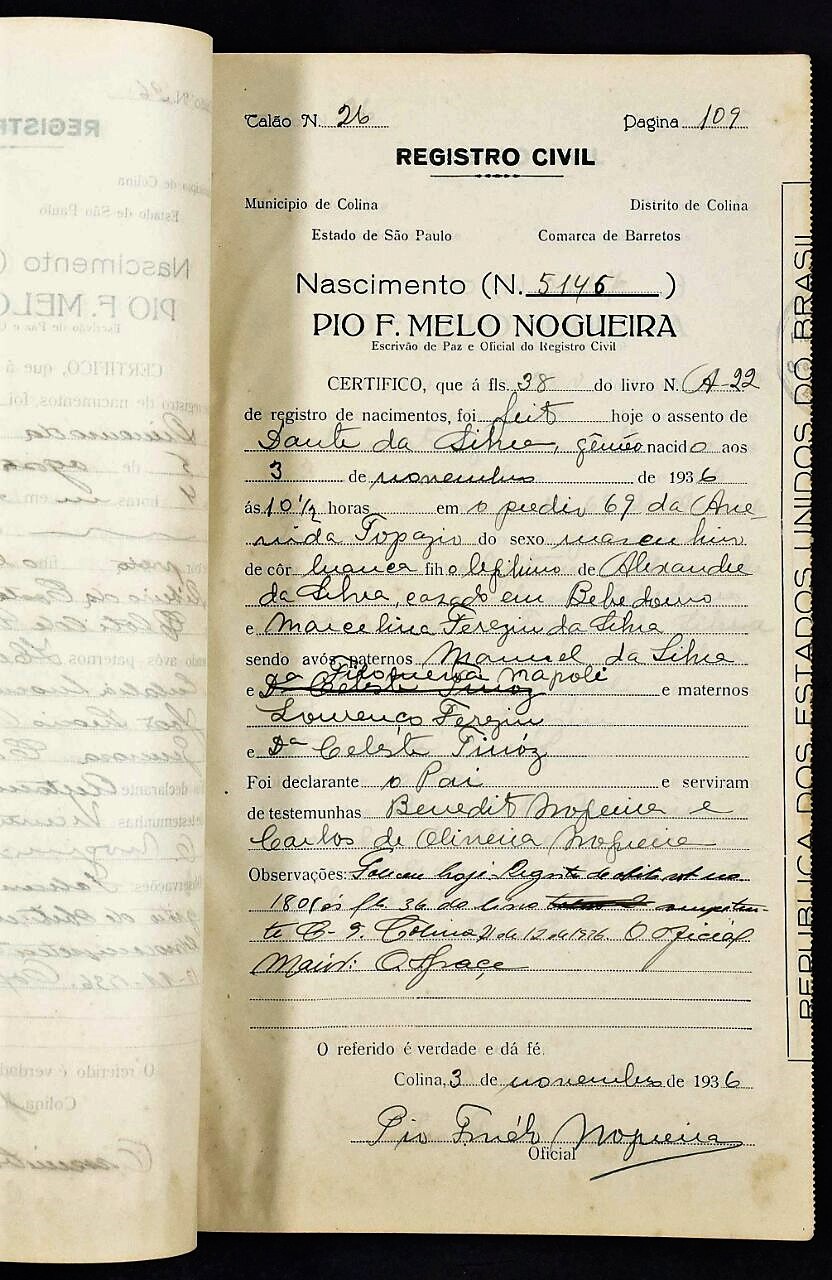 Talão N. 26 Pagina 109
REGISTRO CIVIL
Municipio de Colina Distrito de Colina
Estado de São Paulo Comarca de Barretos
Nascimento (N. 5146)
PIO F. MELO NOGUEIRA
Escrivão de Paz e Oficial do Registro Civil
CERTIFICO, que á fls. 38 do livro N. A-22
de registro de nacimentos, foi feito hoje o assento de
Dante da Silva, gêmeo nacido aos
3 de novembro de 1936
ás 10 1/2 horas em o predio 69 da Ave-
nida Topazio do sexo masculino
de côr branca filho legitimo de Alexandre
da Silva, casado em Bebedouro
e Marcelina Ferezin da Silva
sendo avós paternos Manuel da Silva
Da Filomena Napole
e Da Celeste Tinóz e maternos
Lourenço Ferezin
e Da Celeste Tinóz
Foi declarante o Pai e serviram
de testemunhas Benedito Nogueira e
Carlos de Oliveira Nogueira
Observações: Faleceu hoje. Registo de obito sob no
180, ás fls. 36 do livro competen-
te C-9. Colina 21 de 12 de 1936. O oficial
Maior:
O referido é verdade e dá fé.
Colina, 3 de novembro de 1936
Pio F. Melo Nogueira
Oficial
REPUBLICA DOS ESTADOS UNIDOS DO BRASIL